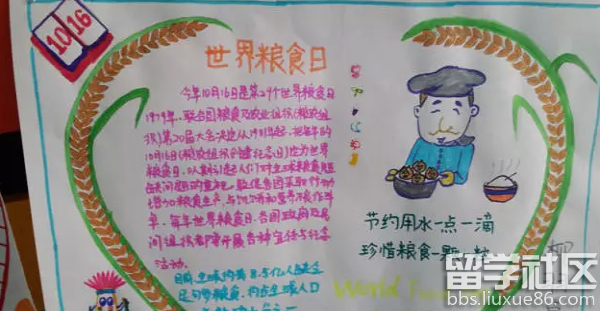 10 16
世界粮食日
今年10月16日是第29个世界粮食日
1979年，联合国粮食及农业组织(粮农组
织)第20届大会决定从1981年起，把每年的
10月16日(粮农组织创建纪念日)定为世界
粮食日，以期引起人们对全球粮食短
缺问题的重视，敦促各国采取行动
增加粮食生产，与饥饿和营养不良作斗
争。每年世界粮食日，各国政府及民
间组织都要开展各种宣传与纪念
活动。
目前，全球约有8.5亿人缺乏
足够粮食，约占全球人口
节约用水一点一滴
珍惜粮食一颗一粒
World
留学社区
bbs.liuxue86.com